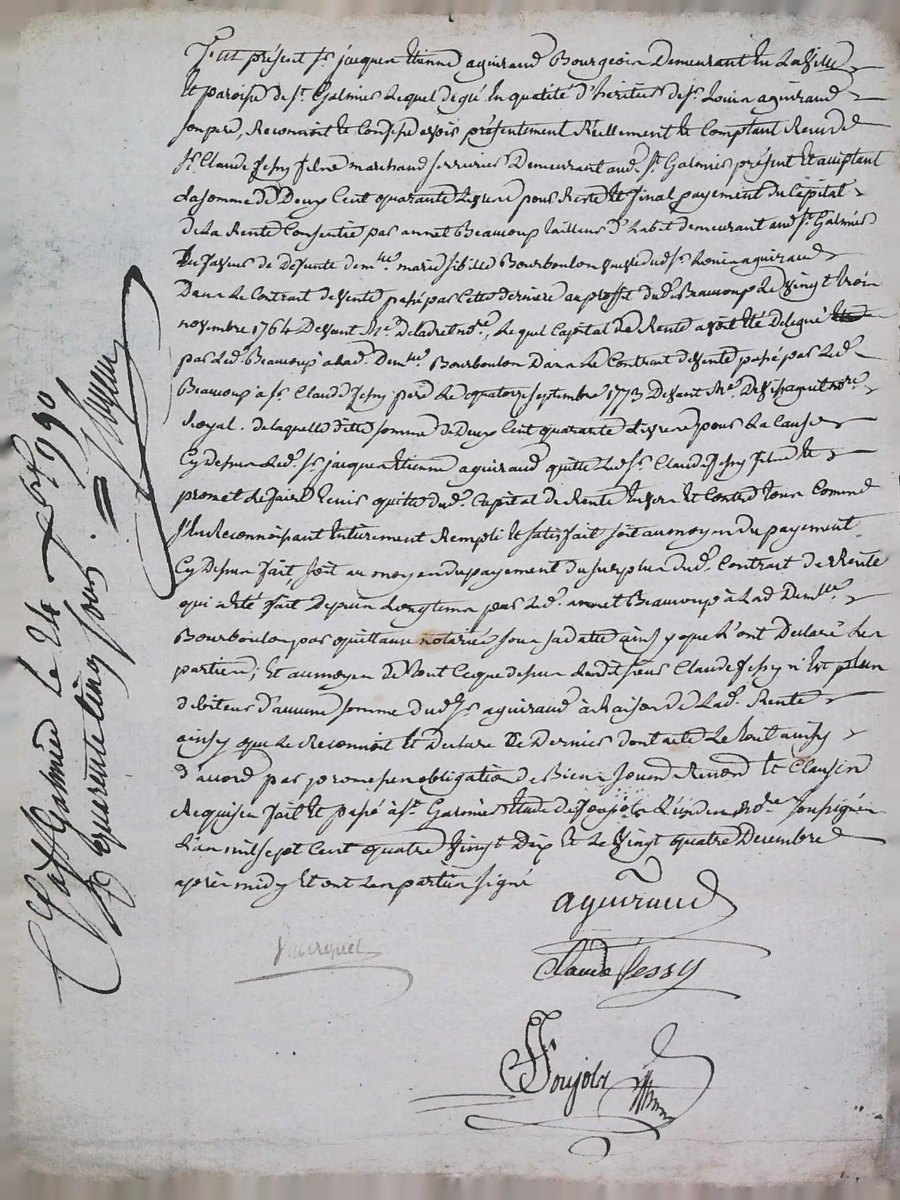 Fut présent sr. jacques Etienne aguiraud Bourgeois Demeurant En La Ville
Et paroise de st. Galmier Lequel de gré En qualité d'héritier de sr. Louis aguiraud
son pere, Reconnoit Et Confesse avoir présentement Réellement Et Comptant Recu de
sr. Claude fessy fils né marchand serrurier Demeurant aud. st. Galmier présent Et acceptant
La somme de Deux Cent quarante Livres pour Reste Et final payement du Capital
de La Rente Consentie par annet Beaucoup tailleur d'habit demeurant aud. st. Galmier
En faveur de Défunte demlle. marie sibille Bourboulon veuve dud. sr. Louis aguiraud
Dans Le Contrat de vente passé par Cette derniere au profit dud. Beaucoup Le vingt trois
novembre 1764 Devant me. Deladret nore., Lequel Capital de Rente avoit été delegué
par Led. Beaucoup a Lad. Demlle. Bourboulon Dans Le Contrat de vente passé par Led.
Beaucoup à sr. Claude fessy pere Le quatorze septembre 1773 Devant me. nore.
Royal. de laquelle dite somme de Deux Cent quarante Livres pour La Cause
Cy dessus Led. sr. jacques Etienne aguiraud quitte Led. sr. Claude fessy fils Et
promet de faire tenir quitte dud. Capital de Rente Envers Et Contre tous Comme
s'En Reconnoissant Entierement Rempli Et satisfait soit au moyen du payement
Cy Dessus fait, soit au moyen du payement du surplus dud. Contrat de Rente
qui a été fait Depuis Longtems par Led. annet Beaucoup à Lad. Demlle.
Bourboulon par quittance notariée sous sa datte ainsy que L'ont Déclaré Les
parties; Et au moyen de tout Ce que dessus Ledit sieur Claude fessy n'Est plus
débiteur d'aucune somme dud. sr. aguiraud à Raison de Lad. Rente
ainsy que Le Reconnoit Et Declare Ce Dernier dont acte Le tout ainsy
d'accord par promesses obligation de Biens soumis Renon Et Clauses
Requises fait Et passé à st. Galmier Etude de Soujols L'un des nores soussignés
L'an mil sept Cent quatre Vingt Dix Et Le Vingt quatre Decembre
après midy Et ont Les parties signé
aguiraud
Claude fessy
Soujols
a st Galmier Le 24 Xbre 1790
quarente Cinq sous